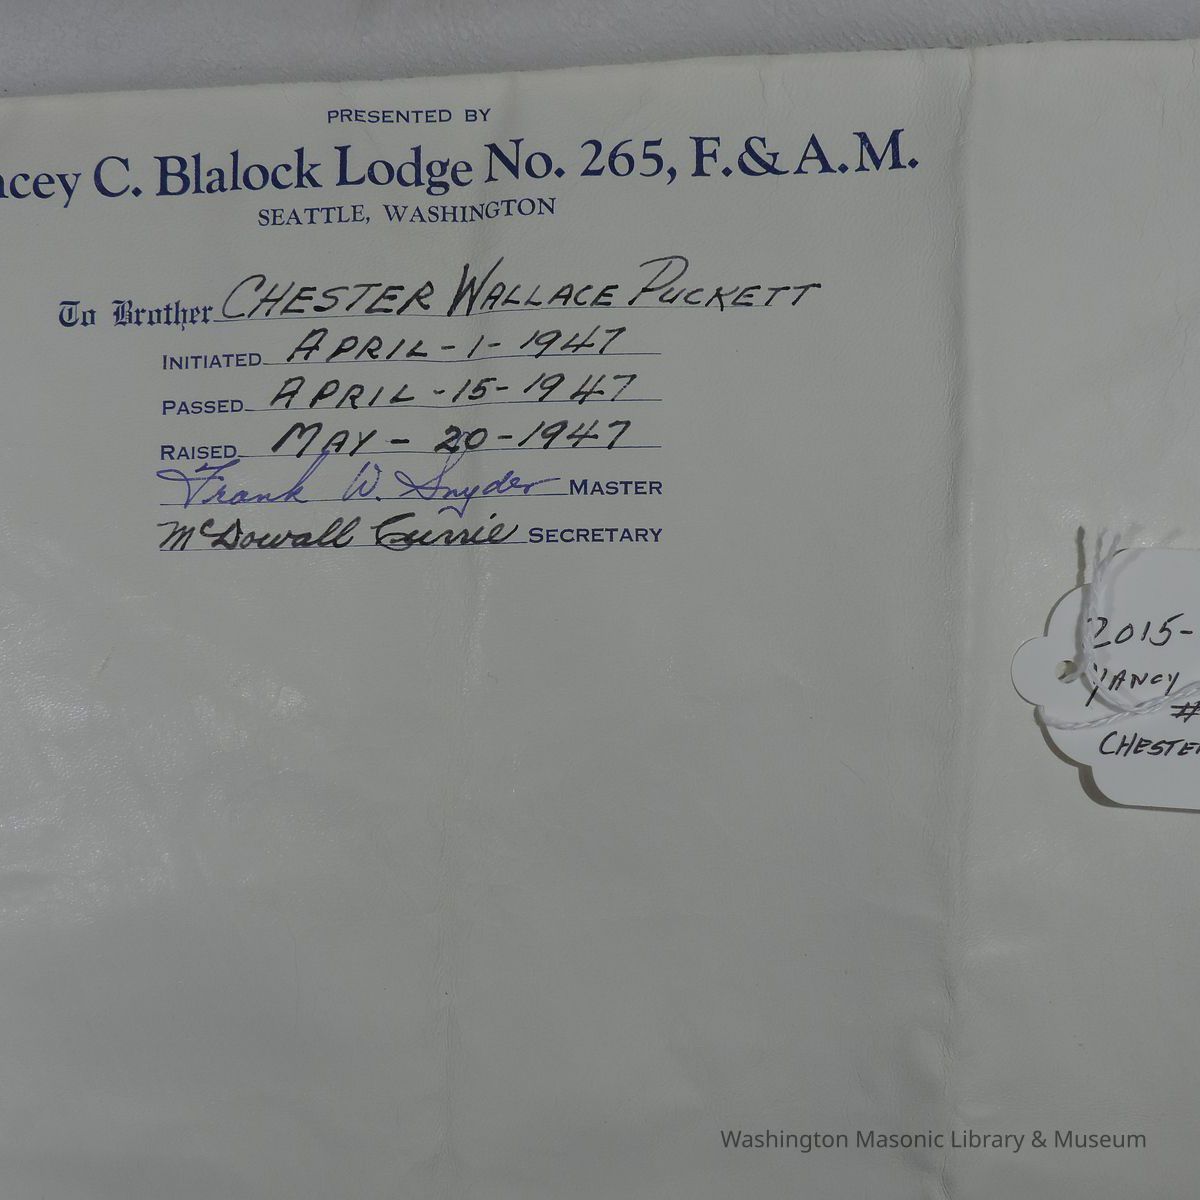 PRESENTED BY
ncey C. Blalock Lodge No. 265, F. & A. M.
SEATTLE, WASHINGTON
To Brother CHESTER WALLACE PUCKETT
INITIATED APRIL-1-1947
PASSED APRIL-15-1947
RAISED MAY-20-1947
Frank W. Snyder MASTER
McDowall Currie SECRETARY
2015-
YANCY
#
CHESTER
Washington Masonic Library & Museum